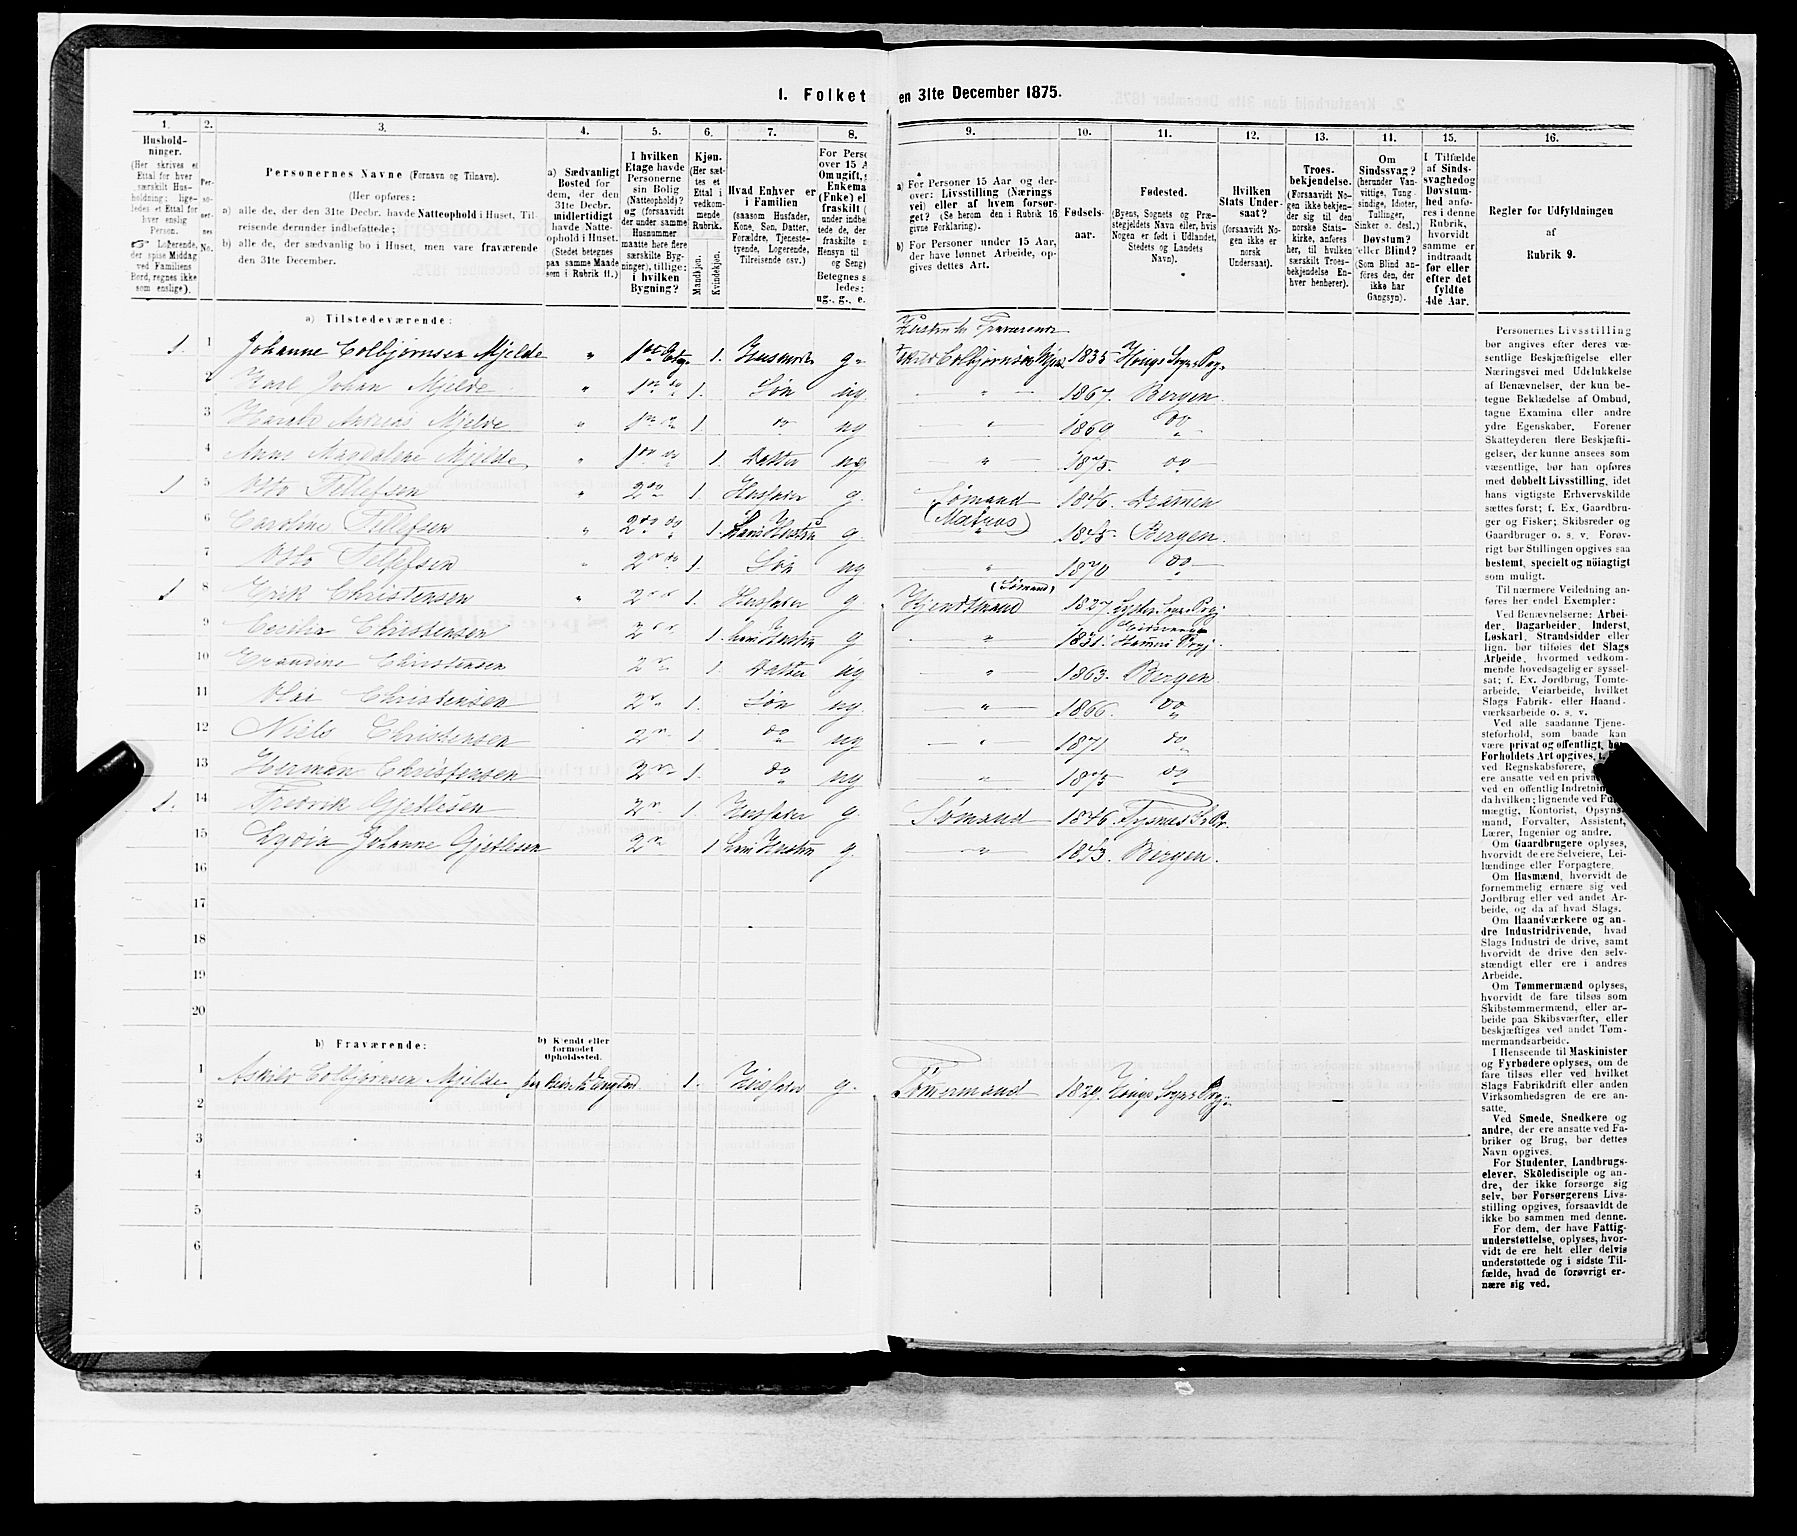 1. Folket
en 31te December 1875.
1. 2. 3. 4. 5. 6. 7. 8. 9. 10. 11. 12. 13. 14. 15. 16.
Hushold-
ninger.
(Her skrives et
Ettal for hver
særskilt Hus-
holdning; lige-
ledes et Ettal for
hver enslig
Person.
Logerende,
der spise Middag
ved Familiens
Bord, regnes ikke
som enslige).
Per-
soner-
nes
No.
Personernes Navne (Fornavn og Tilnavn).
(Her opføres:
a) alle, de, der den 31te Decbr. havde Natteophold i Huset, Til-
reisende derunder indbefattede;
b) alle de, der sædvanlig bo i Huset, men vare fraværende
den 31te December.
a) Sædvanligt
Bosted for
dem, der den
31te Decbr.
midlertidigt
havde Natte-
ophold i Huset.
(Stedet betegnes
paa samme Maade
som i Rubrik 11.)
I hvilken
Etage havde
Personerne
sin Bolig
(Natteophold)?
og (forsaavidt
der under samme
Husnummer
maatte høre flere
særskilte Byg-
ninger), tillige:
i hvilken
Bygning?
Kjøn.
(Her sæt-
tes et
Ettal i
vedkom-
mende
Rubrik.
Mandkjøn.
Kvindekjøn.
Hvad Enhver er
i Familien
(saasom Husfader,
Kone, Søn, Datter,
Forældre, Tjeneste-
tyende, Logerende,
Tilreisende osv.)
For Perso
over 15 A
Om ugift, g
Enkema
(Enke) el
fraskilt
under indbe
tede de, der
fraskilte m
Hensyn til
og Seng)
Betegnes s
ledes:
ug., g., e.
a) For Personer 15 Aar og der-
over: Livsstilling (Nærings
vei) eller af hvem forsør-
get? (Se herom den i Rubrik 16
givne Forklaring).
b) For Personer under 15 Aar,
der have lønnet Arbeide, op-
gives dettes Art.
Fødsels-
aar.
Fødested.
(Byens, Sognets og Præ-
stegjeldets Navn eller, hvis
Nogen er født i Udlandet,
Stedets og Landets
Navn).
Hvilken
Stats Under-
saat?
(forsaavidt No-
gen ikke er
norsk
Undersaat).
Troes-
bekjendelse.
(Forsaavidt No-
gen ikke bekjen-
der sig til den
norske Stats-
kirke, anføres
her, til hvilken
særskilt Troes-
bekjendelse En-
hver henhører).
Om
Sindssvag?
(herunder Van-
vittige, Tung-
sindige, Idioter,
Tullinger,
Sinker o. desl.)
Døvstum?
eller Blind?
(Som Blind an-
føres den, der
ikke har
Gangsyn).
I Tilfælde
af Sinds-
svaghed og
Døvstum-
hed anfø-
res i denne
Rubrik,
hvorvidt
samme er
indtraadt
før eller
efter det
fyldte
4de Aar.
Regler for Udfyldningen
af
Rubrik 9.
a) Tilstedeværende:
1 1 Johanne Colbjørnsen Mjelde " 1ste Etg. 1. Husmoder g. 1835 Houg Sogn Prg.
2 Karl Johan Mjelde " 1. Søn ug. " 1867. Bergen
3 Harald Andreas Mjelde " 1. do ug " 1869. do
4 Anne Magdalene Mjelde " 1. Datter ug " 1875. do
1 5 Otto Tellefsen " 2 1. Husfader g. Sømand 1846. Drammen
6 Caroline Tellefsen " 2 1. Hans Hustru g. (Matros) 1845. Bergen.
7 Otto Tellefsen 2 1. Søn ug " 1870 do
1 8 Erik Christensen " 2 1. Husfader g. Hjendtmand (Sømand) 1827.
9 Cecilia Christensen 2 1. Hans Hustru g " 1831.
10 Christensen 2 1. Datter ug " 1863. Bergen
11 Christensen 2 1. Søn ug " 1866. do
12 Niels Christensen 2 1 do ug " 1871. do
13 Herman Christensen 2 1. do ug " 1875 do
1. 14 Fredrik Gjertsen 2 1. Husfader g. Sømand 1846.
15 Lydia Johanne Gjertsen 2 1 Hans Hustru g. " 1843. Bergen.
16
17
18
19
20
b) Fraværende:
b) Kjendt eller
formodet
Opholdssted.
1 Askild Colbjørnsen Mjelde England 1. Husfader g. Tømermand 1829. Houg Sogns Prgj.
2
3
4
5
6
Personernes Livsstilling
bør angives efter deres væ-
sentlige Beskjæftigelse eller
Næringsvei med Udelukkelse
af Benævnelser, der kun be-
tegne Beklædelse af Ombud,
tagne Examina eller andre
ydre Egenskaber. Forener
Skatteyderen flere Beskjæfti-
gelser, der kunne ansees som
væsentlige, bør han opføres
med dobbelt Livsstilling, idet
hans vigtigste Erhvervskilde
sættes først; f. Ex. Gaardbru-
ger og Fisker; Skibsreder og
Gaardbruger o. s. v. Forøv-
rigt bør Stillingen opgives saa
bestemt, specielt og nøiagtigt
som muligt.
Til nærmere Veiledning an-
føres her endel Exempler:
Ved Benævnelserne: Arbei-
der, Dagarbeider, Inderst,
Løskarl, Strandsidder eller
lign. bør tilføies det Slags
Arbeide, hvormed vedkom-
mende hovedsagelig er syssel-
sat; f. Ex. Jordbrug, Tomte-
arbeide, Veiarbeide, hvilket
Slags Fabrik- eller Haand-
værksarbeide o. s. v.
Ved alle saadanne Tjene-
steforhold, som baade kan
være privat og offentligt, bør
Forholdets Art opgives,
ved Regnskabsførere,
ere ansatte ved en priva
ved en offentlig Indretning
da hvilken; lignende ved Ful-
mægtig, Kontorist, Opsyns-
mand, Forvalter, Assistent,
Lærer, Ingeniør og andre.
Om Gaardbrugere oplyses,
hvorvidt de ere Selveiere, Lei-
lændinge eller Forpagtere.
Om Husmænd, hvorvidt de
fornemmelig ernære sig ved
Jordbrug eller ved andet Ar-
beide, og da af hvad Slags.
Om Haandværkere og an-
dre Industridrivende, hvad
Slags Industri de drive, samt
hvorvidt de drive den selv-
stændigt eller ere i andres
Arbeide.
Om Tømmermænd oplyses,
hvorvidt de fare tilsøs som
Skibstømmermænd, eller ar-
beide paa Skibsværfter, eller
beskjæftiges ved andet Tøm-
mermandsarbeide.
I Henseende til Maskinister
og Fyrbødere oplyses, om de
fare tilsøs eller ved hvilket
Slags Fabrikdrift eller anden
Virksomhedsgren de ere an-
satte.
Ved Smede, Snedkere og
andre, der ere ansatte ved Fa-
briker og Brug, bør dettes
Navn opgives.
For Studenter, Landbrugs-
elever, Skoledisciple og an-
dre, der ikke forsørge sig
selv, bør Forsørgerens Livs-
stilling opgives, forsaavidt de
ikke bo sammen med denne.
For dem, der have Fattig-
understøttelse, oplyses, hvor-
vidt de ere helt eller delvis
understøttede og i sidste Til-
fælde, hvad de forøvrigt er-
nære sig ved.